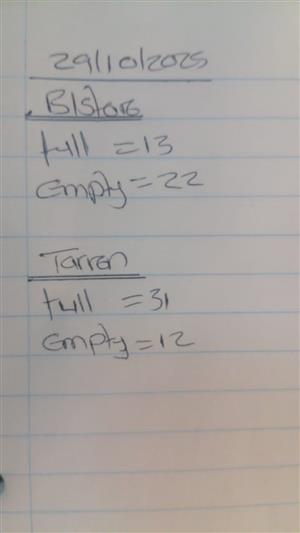 29/10/2025
B/Store
full = 13
empty = 22
Tarren
full = 31
empty = 12